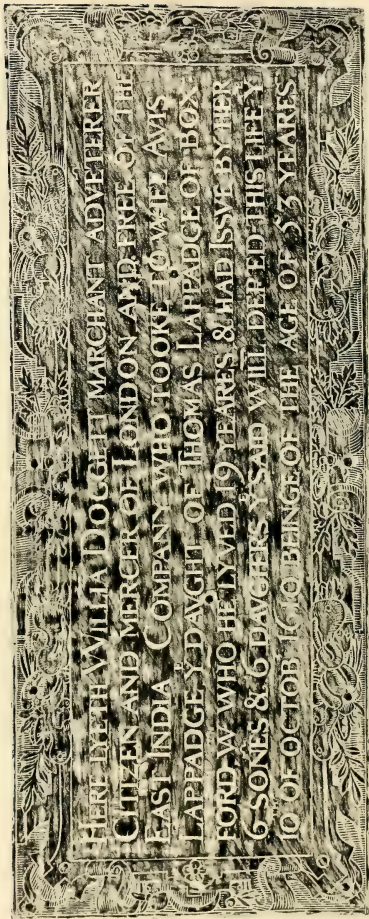 HERE LYETH WILLIĀ DOGGETT MARCHANT ADVĒTERER
CITIZEN AND MERCER OF LONDON AND FREE OF THE
EAST INDIA COMPANY WHO TOOKE TO WIEF AVIS
LAPPADGE Yᵉ DAVGHTʳ OF THOMAS LAPPADGE OF BOX
FORD Wᵗʰ WHO HE LYVED 19 YEARES & HAD ISSVE BY HER
6 SONES & 6 DAVGHERS Yᵉ SAID WILL DEPTED THIS LIFE Yᵉ
10 OF OCTOB 1610 BEINGE OF THE AGE OF 53 YEARES